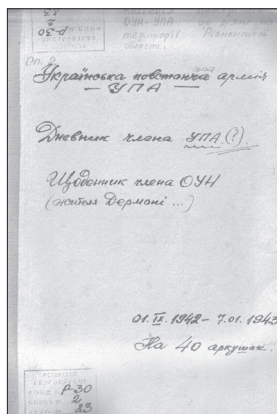 р-30
2
23
ОУН-УПА
території
області.
Оп. 2
Українська повстанча армія
— УПА —
Дневник члена УПА (?).
Щоденник члена ОУН
(жителя Дермані ...)
01. ІХ. 1942 – 7.01. 1943
На 40 аркушах.
Р-30
2
23